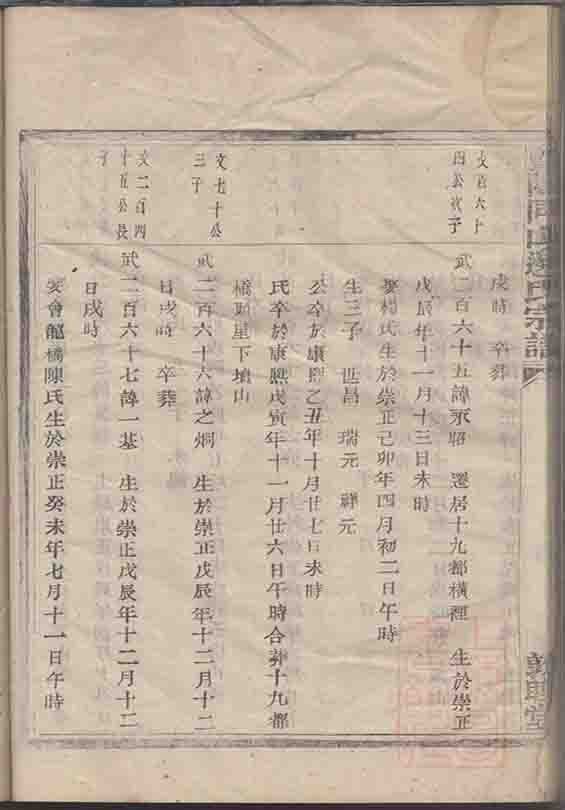 戌時 卒葬
文百六十
四公次子
武二百六十五諱永昭 遷居十九都橫裡 生於崇正
戊辰年十一月十三日未時
娶楊氏生於崇正己卯年四月初二日午時
生三子 世昌 瑞元 祥元
公卒於康熙乙丑年十月廿七日未時
氏卒於康熙戊寅年十一月廿六日午時合葬十九都
橋頭星下壠山
文七十公
三子
武二百六十六諱之炯 生於崇正戊辰年十二月十二
日戌時 卒葬
文二百四
十五公長
子
武二百六十七諱一基 生於崇正戊辰年十二月十二
日戌時
娶會龍橋陳氏生於崇正癸未年七月十一日午時
氏宗譜